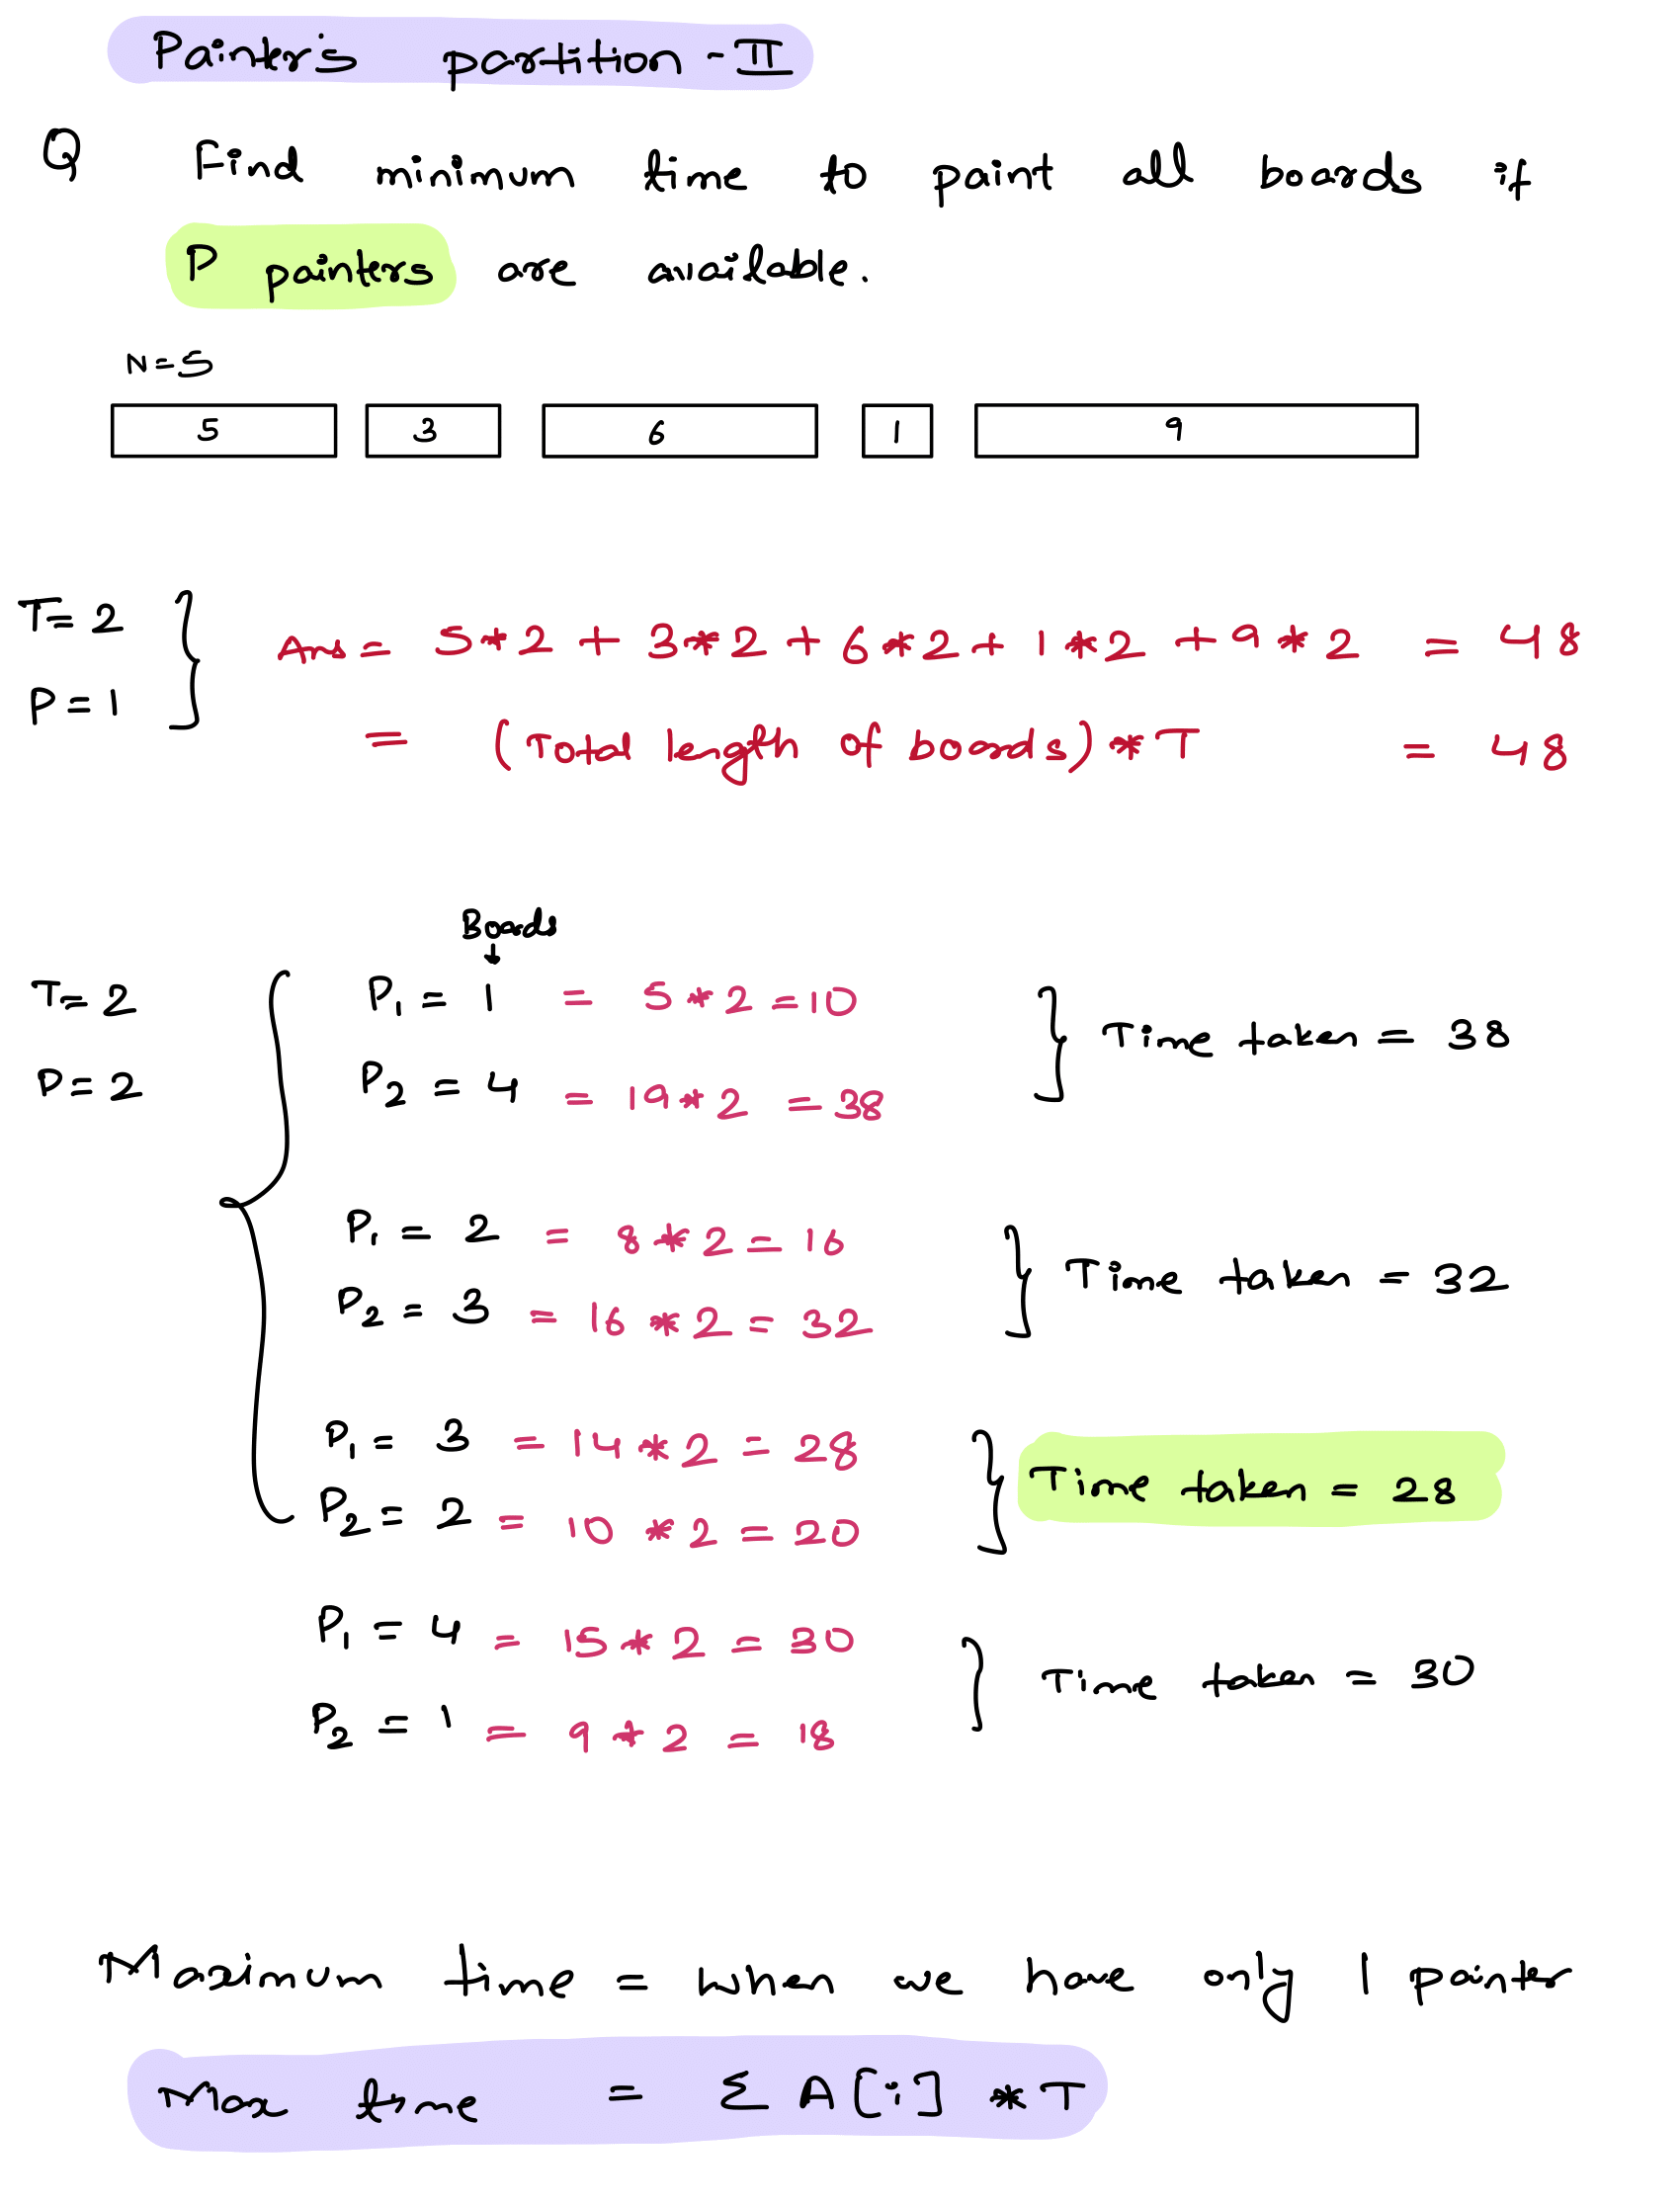 Painter's partition - II
Q Find minimum time to paint all boards if
P painters are available.
N = 5
5 3 6 1 9
T = 2
P = 1
Ans = 5*2 + 3*2 + 6*2 + 1*2 + 9*2 = 48
= (Total length of boards) * T = 48
Boards
↓
T = 2
P = 2
P1 = 1 = 5*2 = 10
P2 = 4 = 19*2 = 38
Time taken = 38
P1 = 2 = 8*2 = 16
P2 = 3 = 16*2 = 32
Time taken = 32
P1 = 3 = 14*2 = 28
P2 = 2 = 10*2 = 20
Time taken = 28
P1 = 4 = 15*2 = 30
P2 = 1 = 9*2 = 18
Time taken = 30
Maximum time = when we have only 1 painter
Max time = Σ A[i] * T